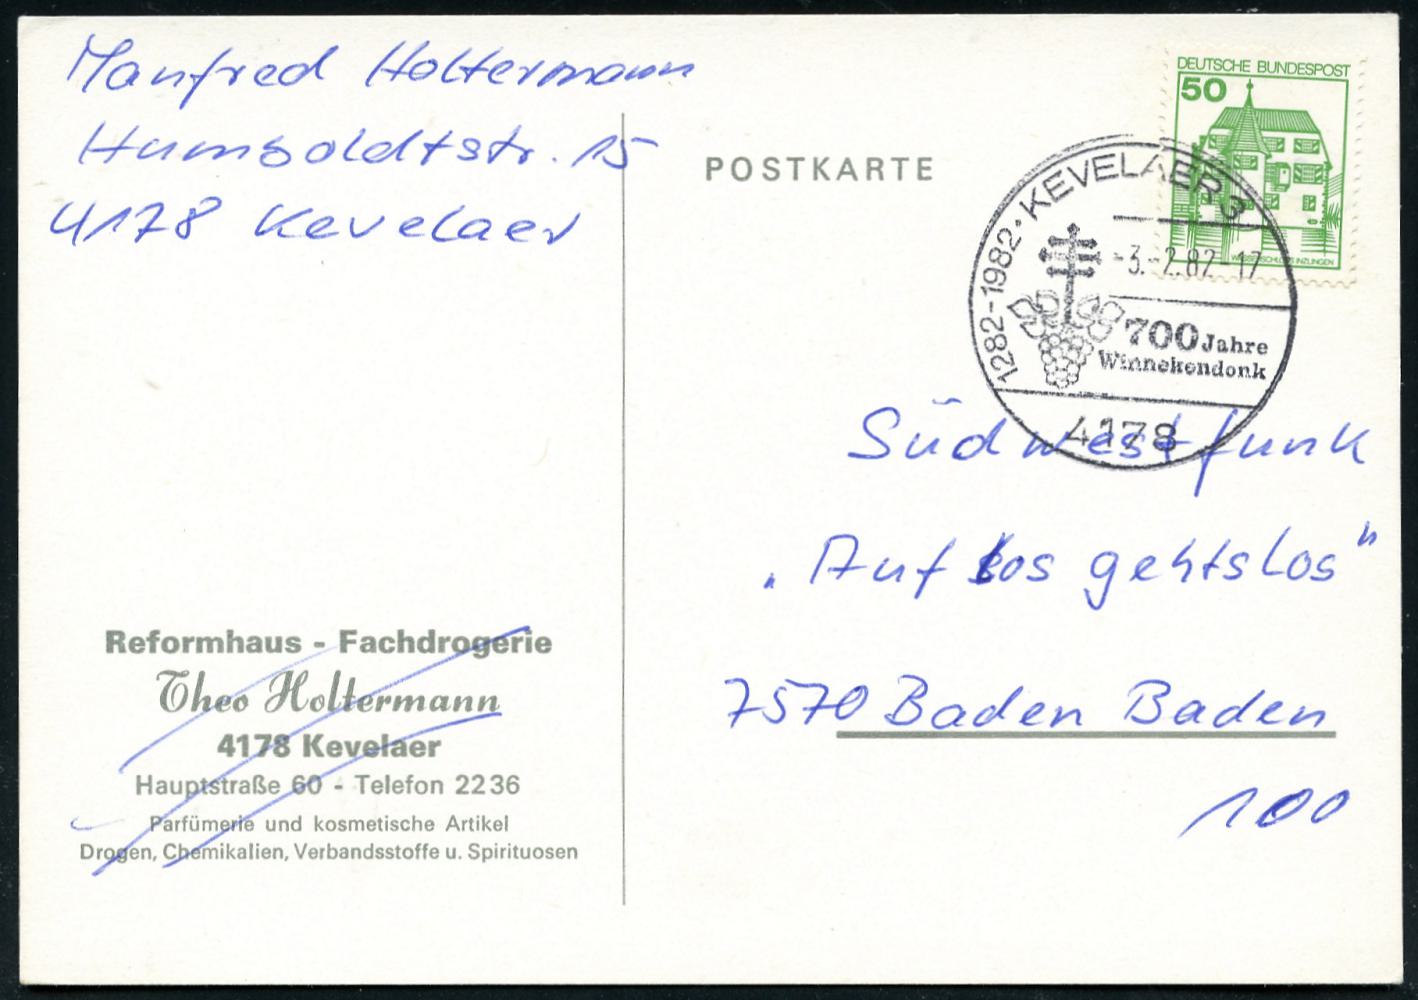 Manfred Holtermann
Humboldtstr. 15
4178 Kevelaer
POSTKARTE
DEUTSCHE BUNDESPOST
50
WASSERSCHLOSS INZLINGEN
1282-1982 · KEVELAER 3
-3.-2.82-17
700 Jahre
Winnekendonk
4178
Südwestfunk
„Auf Los gehts Los"
7570 Baden Baden
100
Reformhaus - Fachdrogerie
Theo Holtermann
4178 Kevelaer
Hauptstraße 60 - Telefon 2236
Parfümerie und kosmetische Artikel
Drogen, Chemikalien, Verbandsstoffe u. Spirituosen